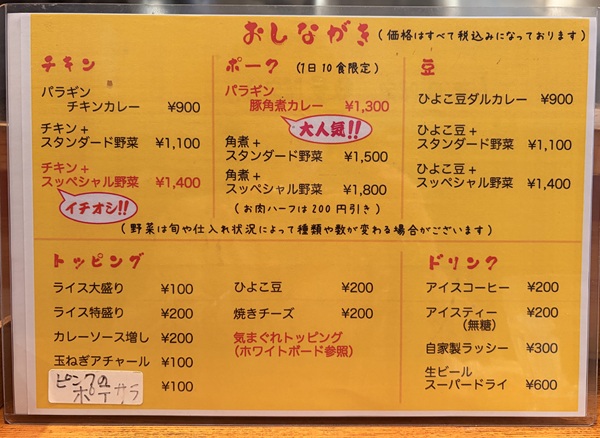 おしながき(価格はすべて税込みになっております)
チキン
パラギン
チキンカレー ¥900
チキン+
スタンダード野菜 ¥1,100
チキン+
スッペシャル野菜 ¥1,400
イチオシ!!
ポーク (1日10食限定)
パラギン
豚角煮カレー ¥1,300
大人気!!
角煮+
スタンダード野菜 ¥1,500
角煮+
スッペシャル野菜 ¥1,800
(お肉ハーフは200円引き)
豆
ひよこ豆ダルカレー ¥900
ひよこ豆+
スタンダード野菜 ¥1,100
ひよこ豆+
スッペシャル野菜 ¥1,400
(野菜は旬や仕入れ状況によって種類や数が変わる場合がございます)
トッピング
ライス大盛り ¥100
ライス特盛り ¥200
カレーソース増し ¥200
玉ねぎアチャール ¥100
ピンクの
ポテサラ ¥100
ひよこ豆 ¥200
焼きチーズ ¥200
気まぐれトッピング
(ホワイトボード参照)
ドリンク
アイスコーヒー ¥200
アイスティー ¥200
(無糖)
自家製ラッシー ¥300
生ビール
スーパードライ ¥600